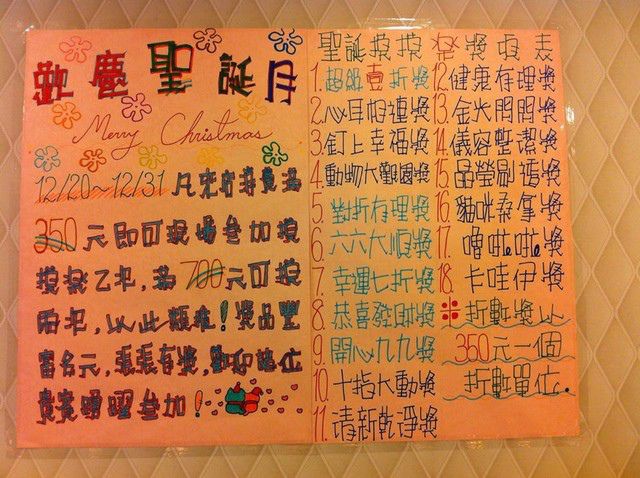 歡慶聖誕月
Merry Christmas
12/20~12/31 凡來消費滿
350元即可現場參加摸
摸樂乙次,滿700元可摸
兩次,以此類推!獎品豐
富多元,張張有獎,歡迎諸位
貴賓踴躍參加!
聖誕摸摸樂獎項表
1.超級壹折獎
2.心耳連獎
3.釘上幸福獎
4.動物大觀園獎
5.對折有理獎
6.六六大順獎
7.幸運七折獎
8.恭喜發財獎
9.開心九九獎
10.十指大動獎
11.清新乾淨獎
12.健康有理獎
13.金光閃閃獎
14.儀容整潔獎
15.晶瑩剔透獎
16.貓咪桑拿獎
17.嚕啦啦獎
18.卡哇伊獎
※折數獎以
350元一個
折數單位.